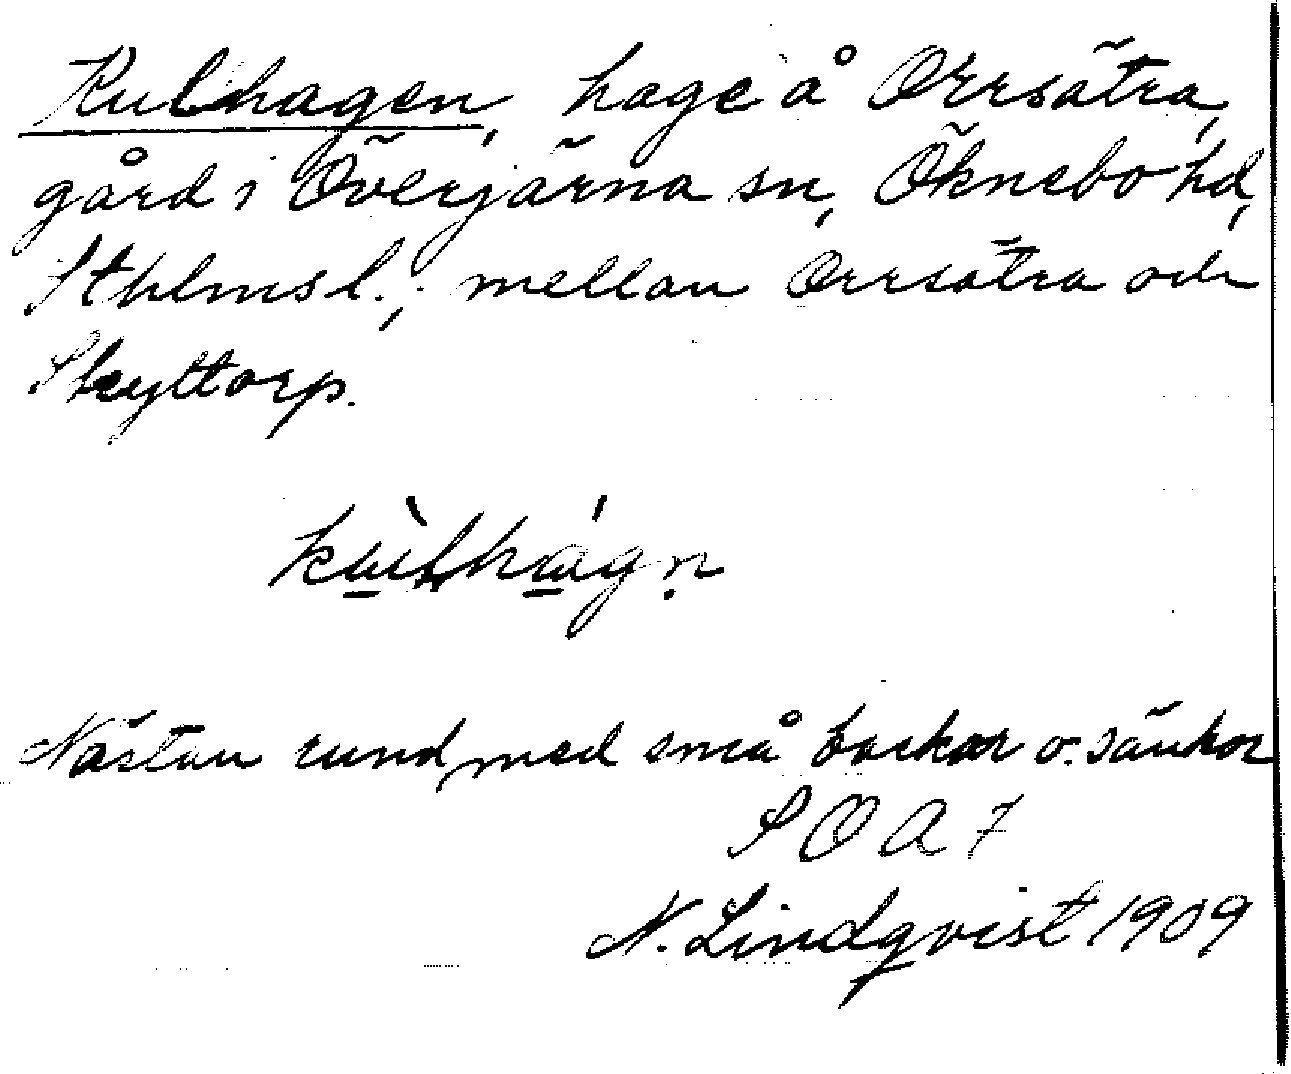 Kulhagen, hage å Orrsätra,
gård i Överjärna sn, Öknebo hd,
Sthlms l., mellan Orrsätra och
Skyttorp.
Nästan rund, med små backar o. sänkor
S O A 7
N. Lindqvist 1909